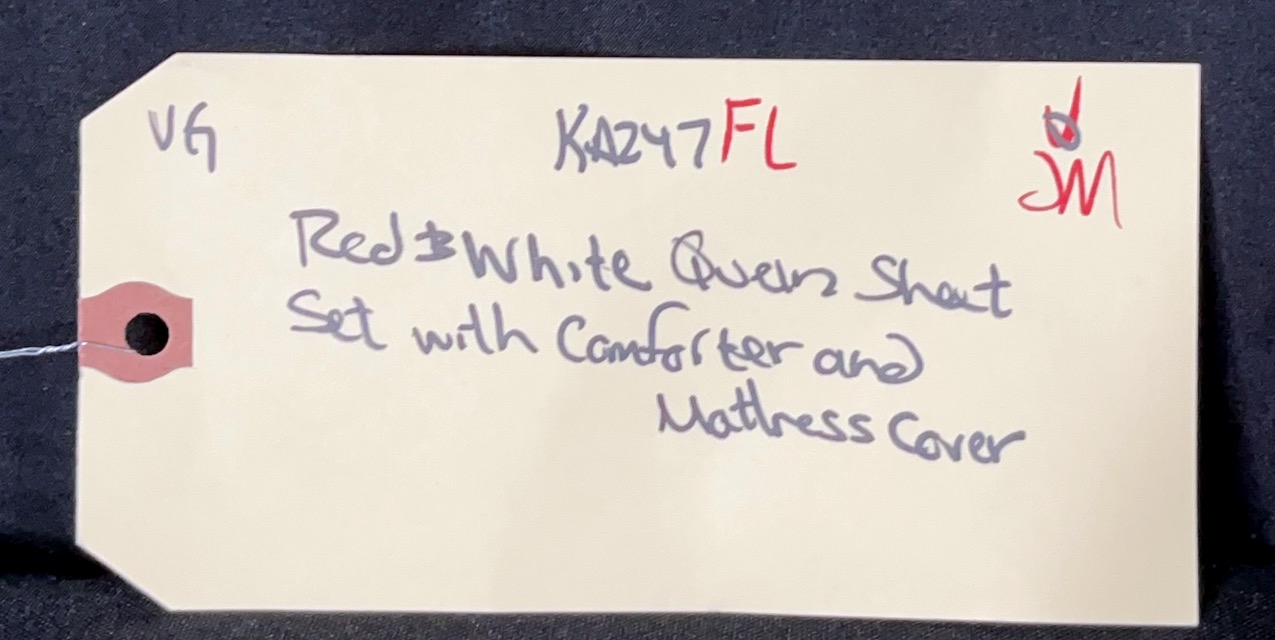 VG KA247FL JM
Red & White Queen Sheet
Set with Comforter and
Mattress Cover